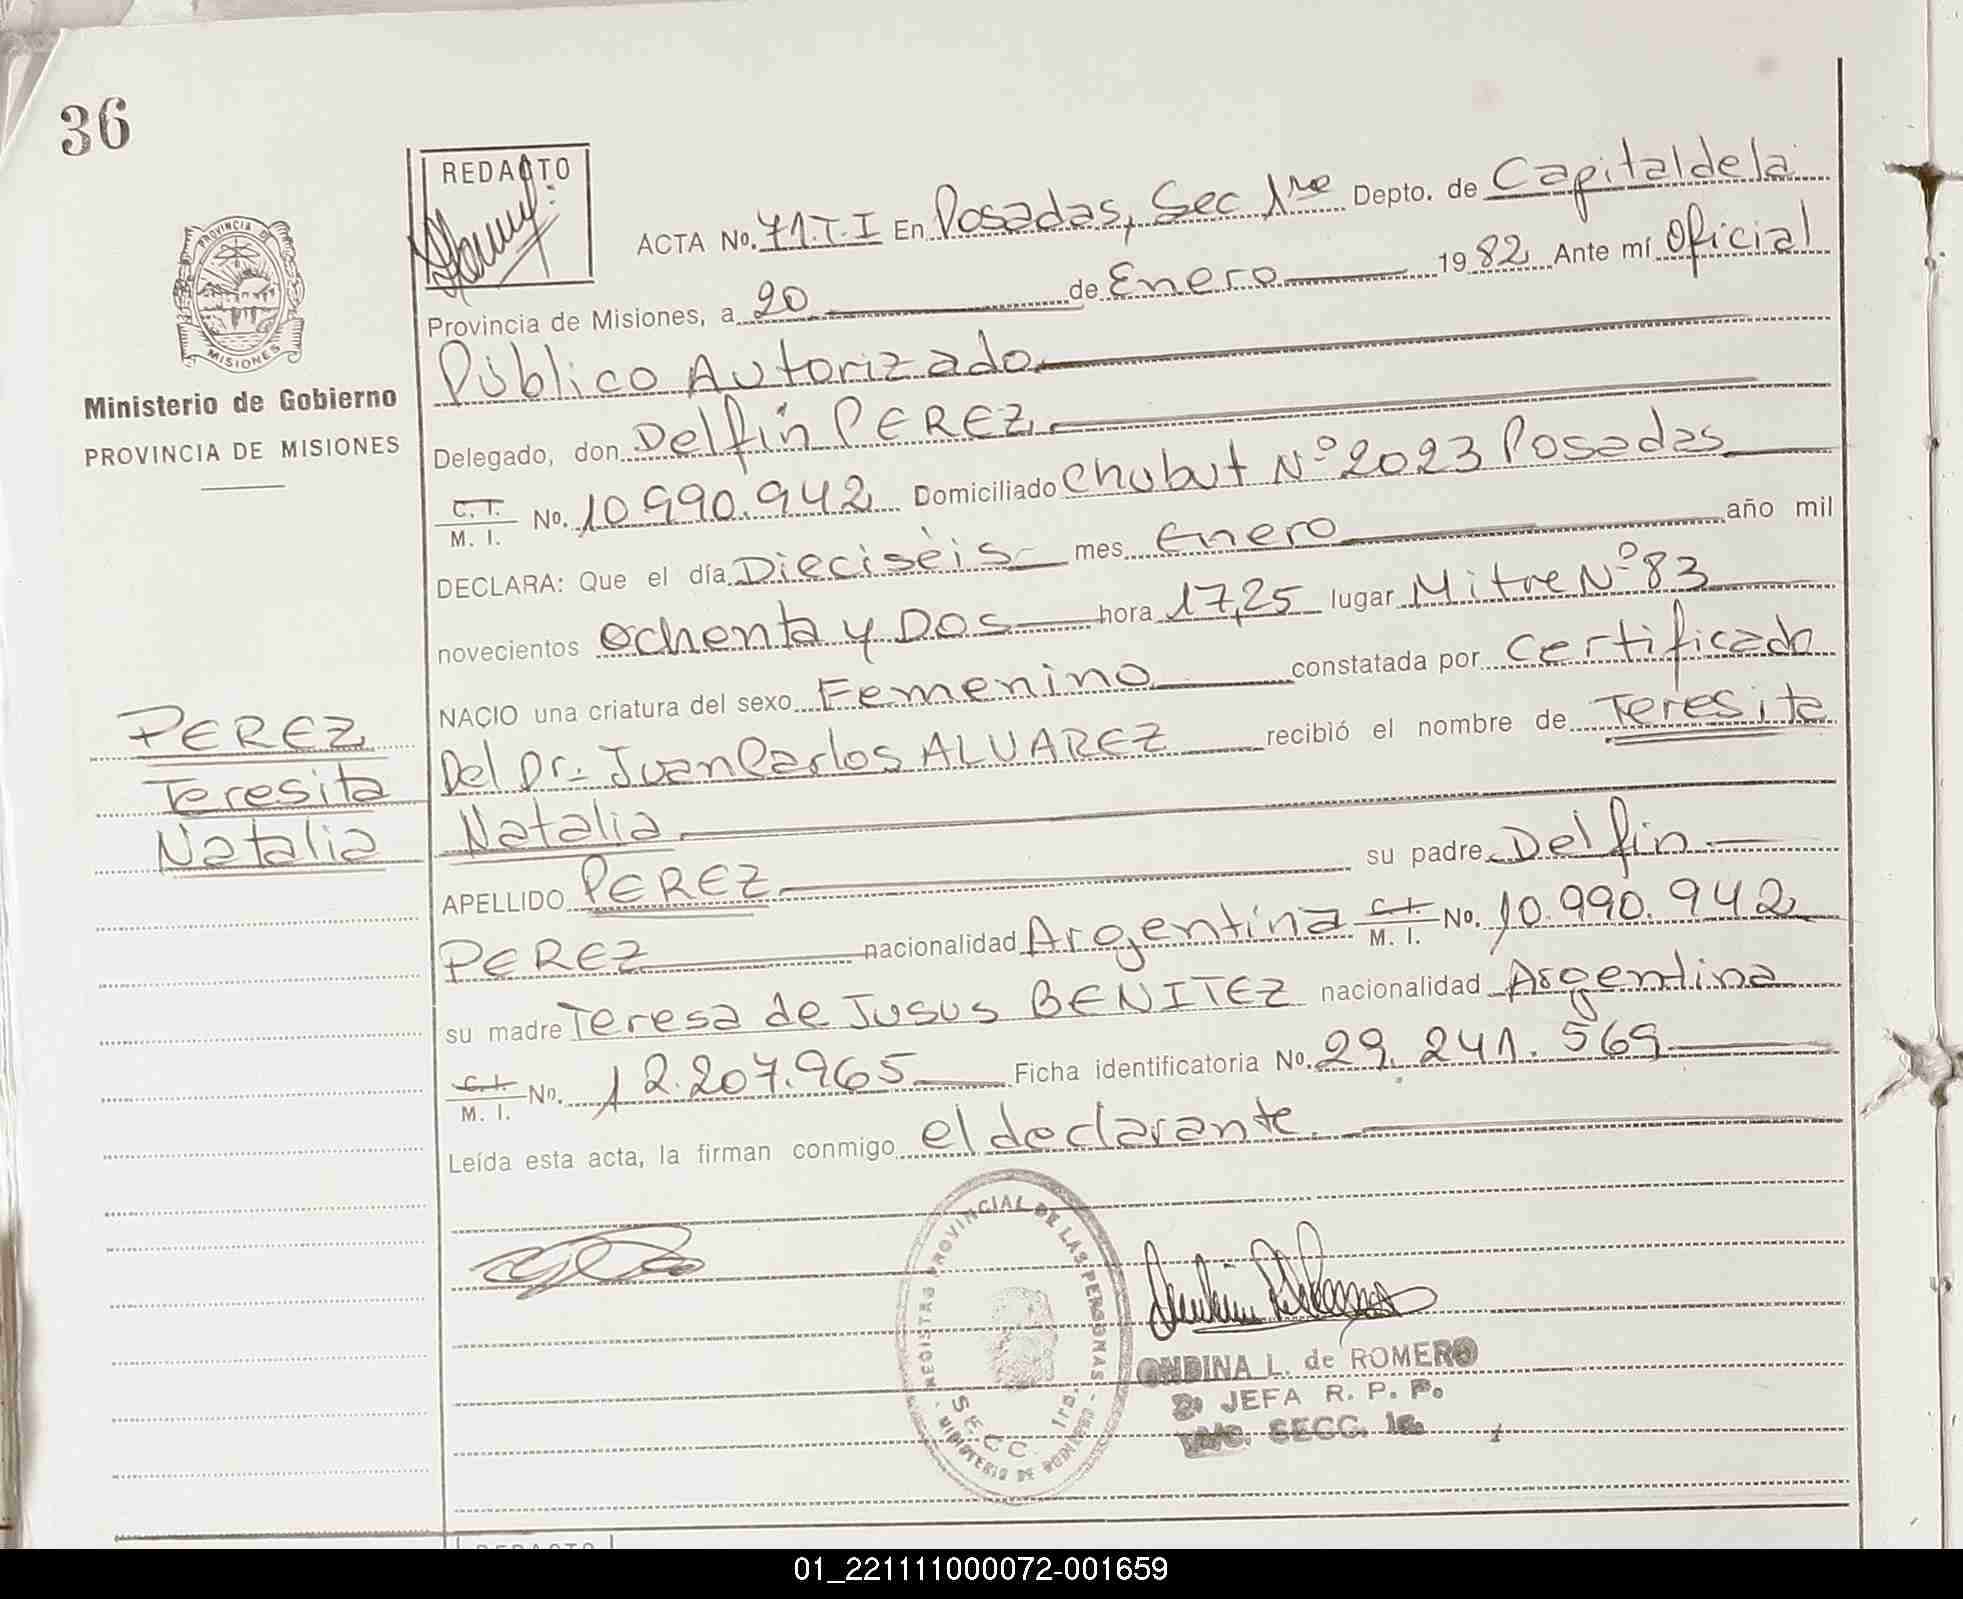 36
REDACTO
ACTA No. 71.T.I En Posadas, Sec 1ra Depto. de Capital de la
Provincia de Misiones, a 20 de Enero 1982 Ante mí Oficial
Público Autorizado
Delegado, don Delfín PEREZ
PROVINCIA DE MISIONES
Ministerio de Gobierno
PROVINCIA DE MISIONES
C.I. M. I. No. 10.990.942 Domiciliado Chubut Nº 2023 Posadas
DECLARA: Que el día Dieciséis mes Enero año mil
novecientos ochenta y Dos hora 17,25 lugar Mitre Nº 83
NACIO una criatura del sexo Femenino constatada por Certificado
Del Dr. Juan Carlos ALVAREZ recibió el nombre de Teresita
Natalia
PEREZ
Teresita
Natalia
APELLIDO PEREZ su padre Delfin
PEREZ nacionalidad Argentina C.I. M. I. No. 10.990.942
su madre Teresa de Jusus BENITEZ nacionalidad Argentina
C.I. M. I. No. 12.207.965 Ficha identificatoria No. 29.241.569
Leída esta acta, la firman conmigo el declarante.
REGISTRO PROVINCIAL DE LAS PERSONAS
SECC. 1ra.
MINISTERIO DE GOBIERNO
ONDINA L. de ROMERO
2ª JEFA R. P. P.
SECC. 1a.
01_221111000072-001659